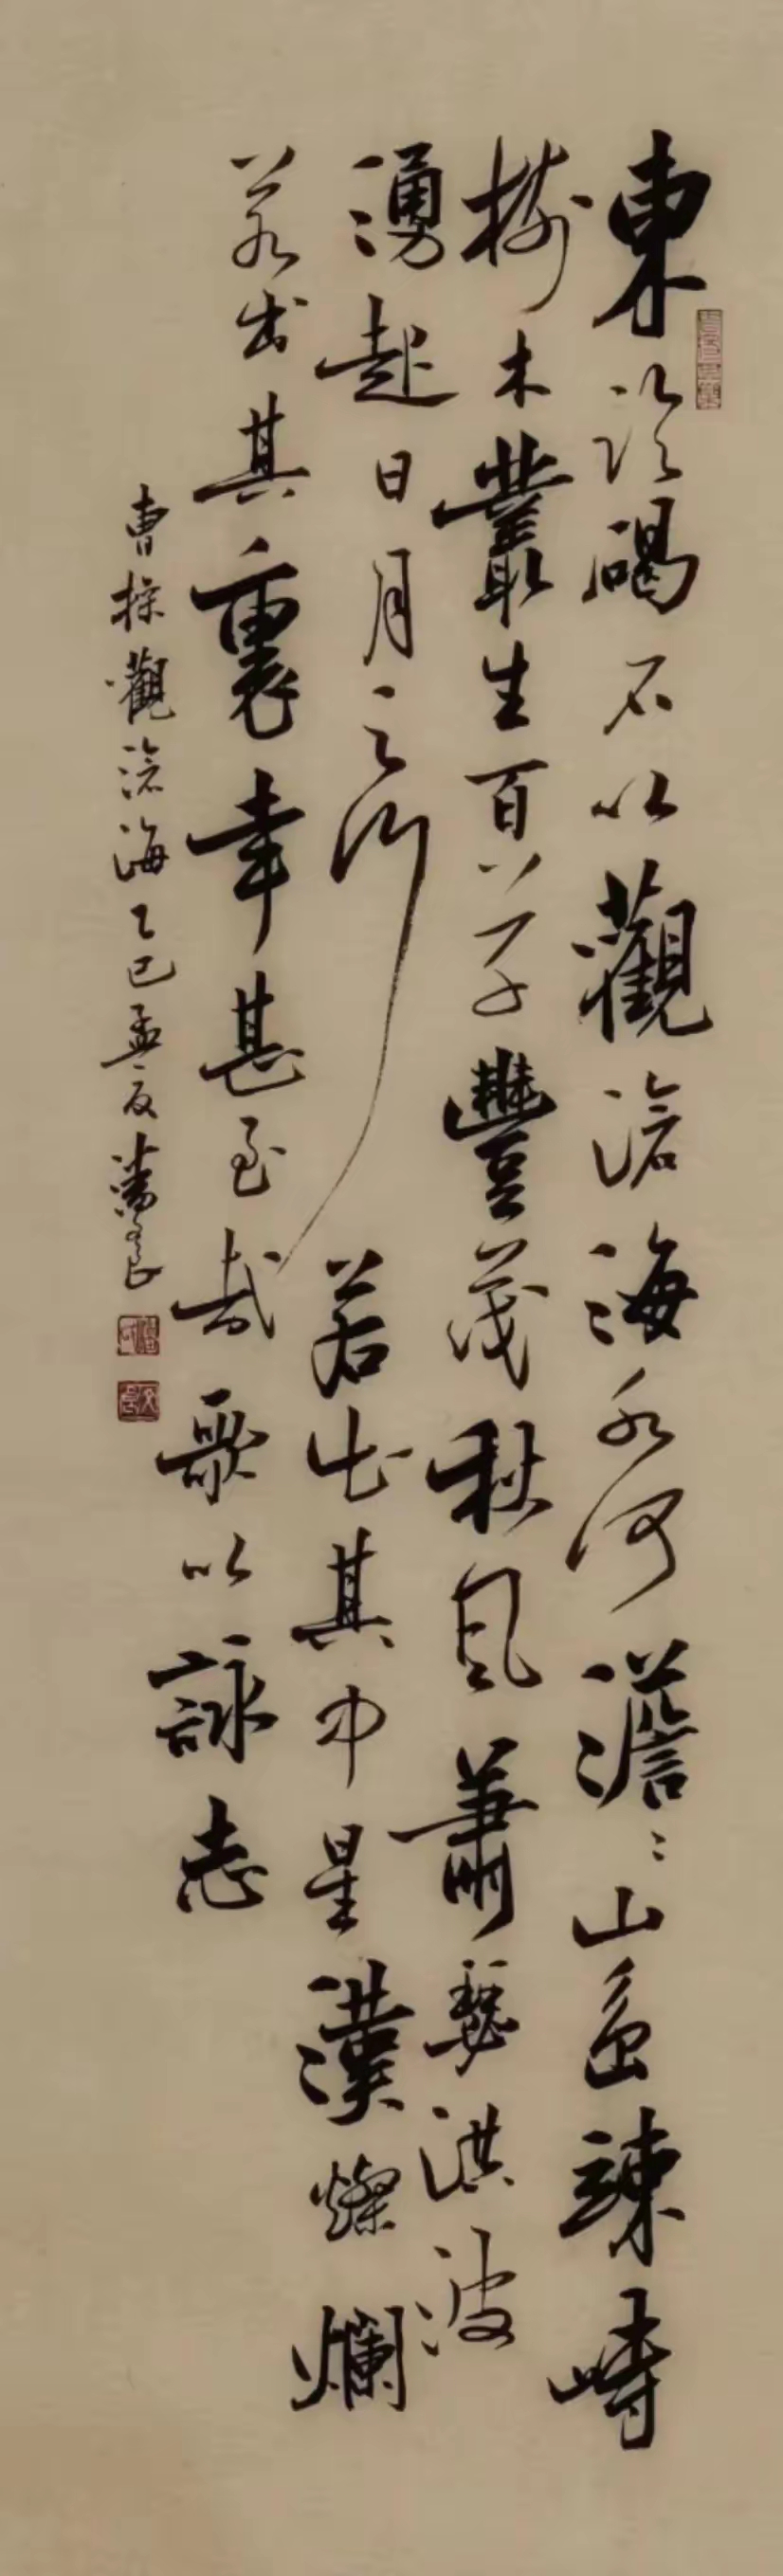 東臨碣石以觀滄海水何澹〻山島竦峙
樹木叢生百草豐茂秋風蕭瑟洪波
湧起日月之行若出其中星漢燦爛
若出其裏幸甚至哉歌以詠志
曹操觀滄海乙巳孟夏潘良